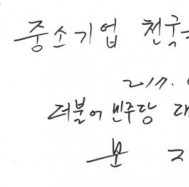 중소기업 천국
2017.
더불어민주당 대
문